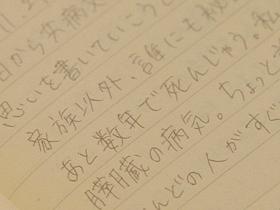 11.2
日から共病文
思いを書いていこうと
家族以外、誰にも秘
あと数年で死んじゃう。私
膵臓の病気。ちょっと
んどの人がすぐ